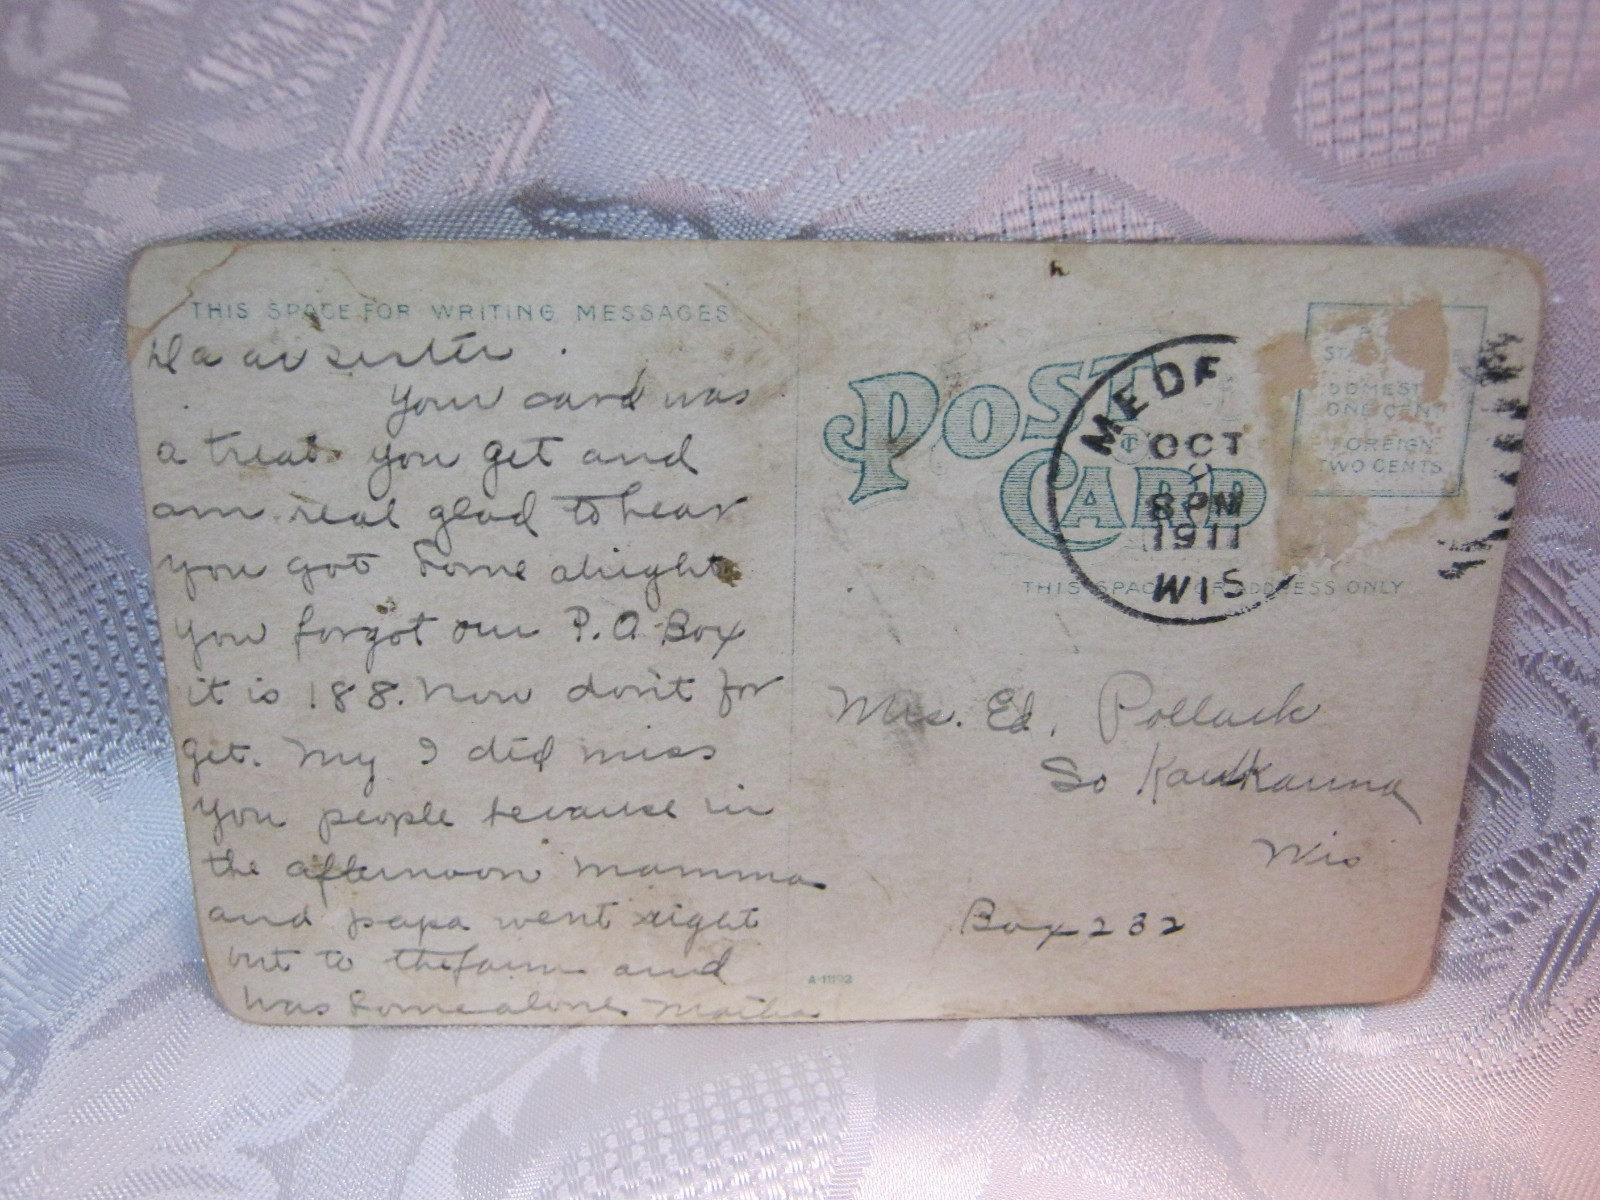 THIS SPACE FOR WRITING MESSAGES
Dear sister.
Your card was
a treat you get and
am real glad to hear
you got home alright
you forgot our P.O Box
it is 188. Now don't for
get. My I did miss
you people because in
the afternoon mamma
and papa went right
out to the farm and
was home alone
POST CARD
THIS SPACE FOR ADDRESS ONLY
DOMESTIC
ONE CENT
FOREIGN
TWO CENTS
MEDF
OCT
8 PM
1911
WIS
Mrs. Ed. Pollack
So Kaukauna
Wis
Box 232